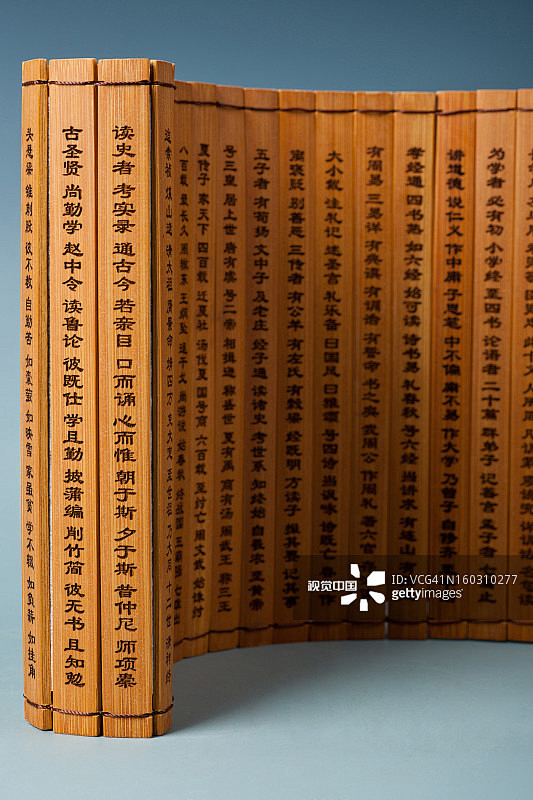 为学者 必有初 小学终 至四书 论语者 二十篇 群弟子 记善言 孟子者 七篇止
讲道德 说仁义 作中庸 子思笔 中不偏 庸不易 作大学 乃曾子 自修齐
孝经通 四书熟 如六经 始可读 诗书易 礼春秋 号六经 当讲求 有连山
有周易 三易详 有典谟 有训诰 有誓命 书之奥 我周公 作周礼 著六官
大小戴 注礼记 述圣言 礼乐备 曰国风 曰雅颂 号四诗 当讽咏 诗既亡 春秋作
寓褒贬 别善恶 三传者 有公羊 有左氏 有榖梁 经既明 方读子 撮其要 记其事
五子者 有荀扬 文中子 及老庄 经子通 读诸史 考世系 知终始 自羲农 至黄帝
号三皇 居上世 唐有虞 号二帝 相揖逊 称盛世 夏有禹 商有汤 周武王 称三王
夏传子 家天下 四百载 迁夏社 汤伐夏 国号商 六百载 至纣亡 始诛纣
八百载 最长久 周辙东 王纲坠 逞干戈 尚游说 始春秋 终战国 五霸强 七雄出
迨崇祯 煤山逝 清太祖 膺景命 靖四方 克大定 至世祖 乃大同 十二世 清祚终
读史者 考实录 通古今 若亲目 口而诵 心而惟 朝于斯 夕于斯 昔仲尼 师项橐
古圣贤 尚勤学 赵中令 读鲁论 彼既仕 学且勤 披蒲编 削竹简 彼无书 且知勉
头悬梁 锥刺股 彼不教 自勤苦 如囊萤 如映雪 家虽贫 学不辍 如负薪 如挂角
视觉中国
ID: VCG41N160310277
gettyimages